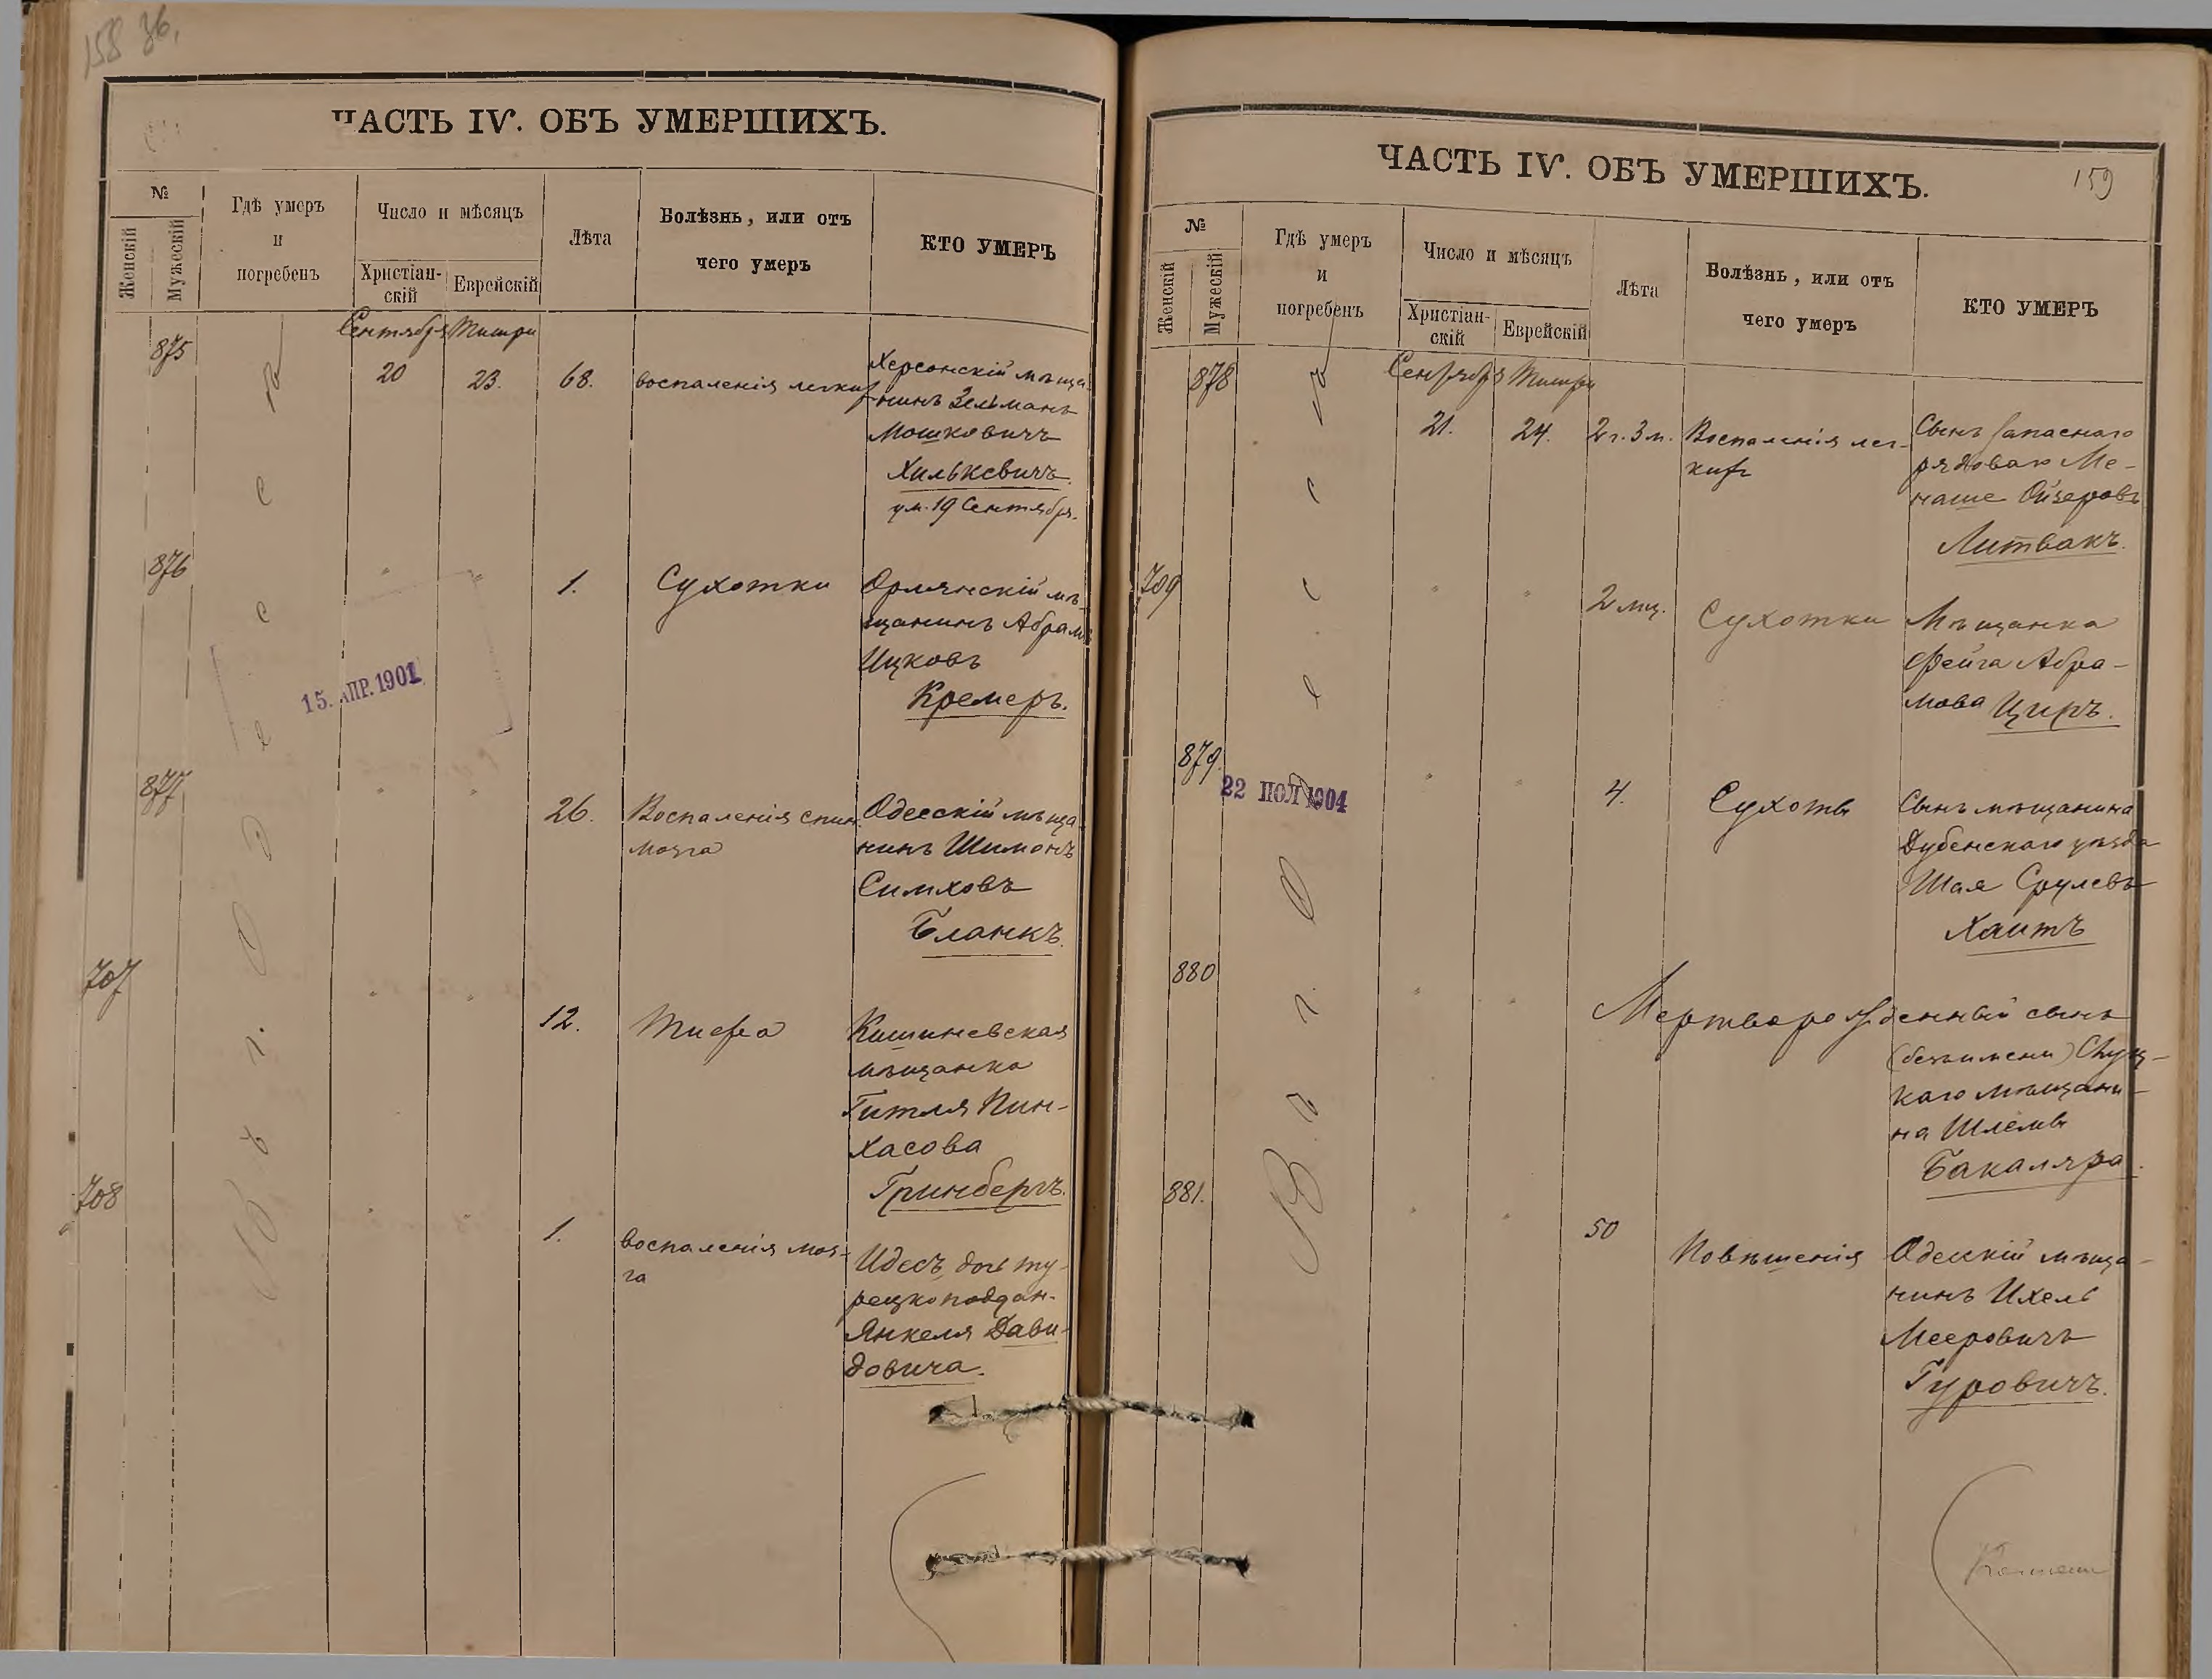 158
ЧАСТЬ IV. ОБЪ УМЕРШИХЪ.
№
Женскій
Мужескій
Гдѣ умеръ
и
погребенъ
Число и мѣсяцъ
Христіан-
скій
Еврейскій
Лѣта
Болѣзнь, или отъ
чего умеръ
КТО УМЕРЪ
Въ г. Одессѣ
Сентября Тишри
875
20
23.
68.
воспаленія легкихъ
Херсонскій мѣща-
нинъ Зельманъ
Мошковичъ
Хилькевичъ.
ум. 19 Сентября.
876
"
"
1.
Сухотки
мѣ-
щанинъ Абрамъ
Ицковъ
Кремеръ.
15. АПР. 1901
877
"
"
26.
Воспаленія спин.
мозга
Одесскій мѣща-
нинъ Шимонъ
Симховъ
Бланкъ.
707
"
"
12.
Тифа
Кишиневская
мѣщанка
Гитля Пин-
хасова
Гринбергъ.
708
"
"
1.
воспаленія моз-
га
Идесъ, дочь ту-
рецкоподдан.
Янкеля Дави-
довича.
ЧАСТЬ IV. ОБЪ УМЕРШИХЪ.
159
№
Женскій
Мужескій
Гдѣ умеръ
и
погребенъ
Число и мѣсяцъ
Христіан-
скій
Еврейскій
Лѣта
Болѣзнь, или отъ
чего умеръ
КТО УМЕРЪ
Въ г. Одессѣ
Сентября Тишри
878
21.
24.
2 г. 3 м.
Воспаленія лег-
кихъ
Сынъ запаснаго
рядоваго Ме-
наше Ойзеровъ
Литвакъ.
709
"
"
2 мц.
Сухотки
Мѣщанка
Фейга Абра-
мова Циръ.
879.
22 ПОЛ 1904
"
"
4.
Сухоты
Сынъ мѣщанина
Дубенскаго уѣзда
Шая Срулевъ
Хаитъ
880
"
"
Мертворожденный сынъ
(безъ имени) Слуц-
каго мѣщани-
на Шлемы
Бакаляра.
881.
"
"
50
Повѣшенія
Одесскій мѣща-
нинъ Ихель
Мееровичъ
Гуровичъ.